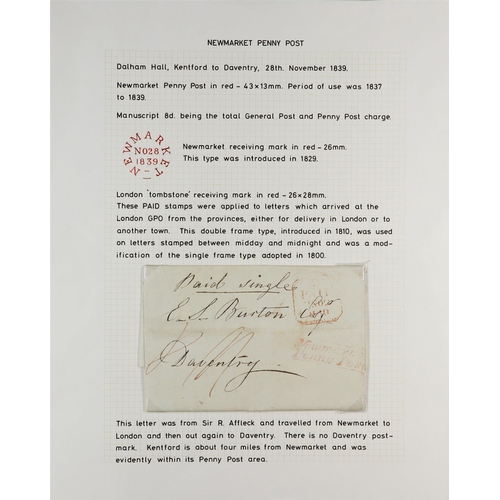 NEWMARKET PENNY POST
Dalham Hall, Kentford to Daventry, 28th. November 1839.
Newmarket Penny Post in red - 43×13mm. Period of use was 1837
to 1839.
Manuscript 8d. being the total General Post and Penny Post charge.
NEWMARKET
NO28
1839
Newmarket receiving mark in red - 26mm.
This type was introduced in 1829.
London 'tombstone' receiving mark in red - 26×28mm.
These PAID stamps were applied to letters which arrived at the
London GPO from the provinces, either for delivery in London or to
another town. This double frame type, introduced in 1810, was used
on letters stamped between midday and midnight and was a mod-
ification of the single frame type adopted in 1800.
Paid Single
E. S. Burton Esq
Daventry.
Newmarket
Penny Post
This letter was from Sir R. Affleck and travelled from Newmarket to
London and then out again to Daventry. There is no Daventry post-
mark. Kentford is about four miles from Newmarket and was
evidently within its Penny Post area.